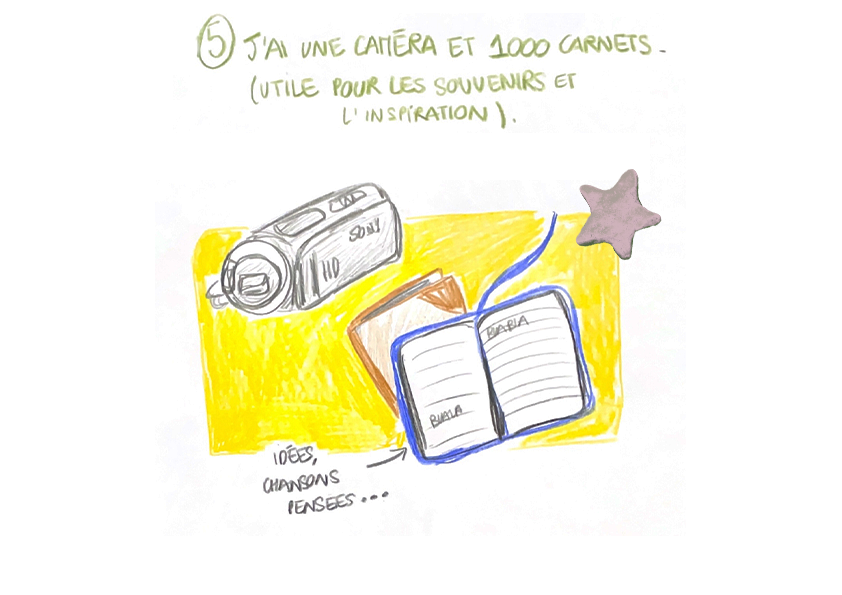 5 J'AI UNE CAMÉRA ET 1000 CARNETS.
(UTILE POUR LES SOUVENIRS ET
L'INSPIRATION).
SONY
HD
BLABLA
BLALA
IDÉES,
CHANSONS
PENSÉES...